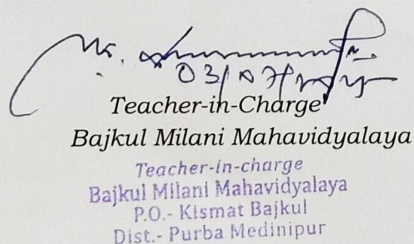 Teacher-in-Charge
Bajkul Milani Mahavidyalaya
Teacher-in-charge
Bajkul Milani Mahavidyalaya
P.O.- Kismat Bajkul
Dist.- Purba Medinipur